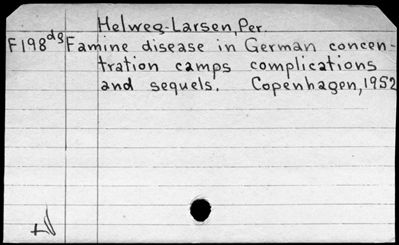 Helweg-Larsen, Per.
F198ds Famine disease in German concen-
tration camps complications
and sequels. Copenhagen, 1952